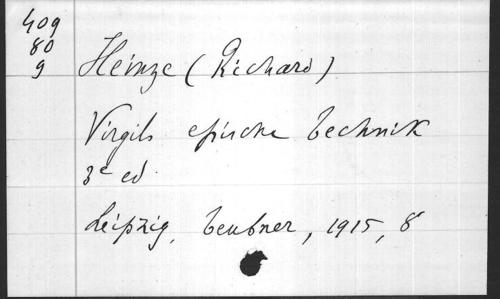 409
80
9
Heinze (Richard)
Virgils epische Technik
3e ed.
Leipzig, Teubner, 1915, 8°